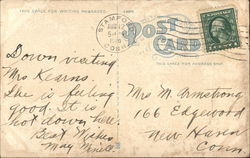 THIS SPACE FOR WRITING MESSAGES.
STAMFORD
CONN.
POST
CARD
THIS SPACE FOR ADDRESS ONLY.
Down visiting
Mrs Kearns.
She is feeling
good. It is
hot down here.
Best Wishes
May
Mrs M. Armstrong
166 Edgewood
New Haven
Conn